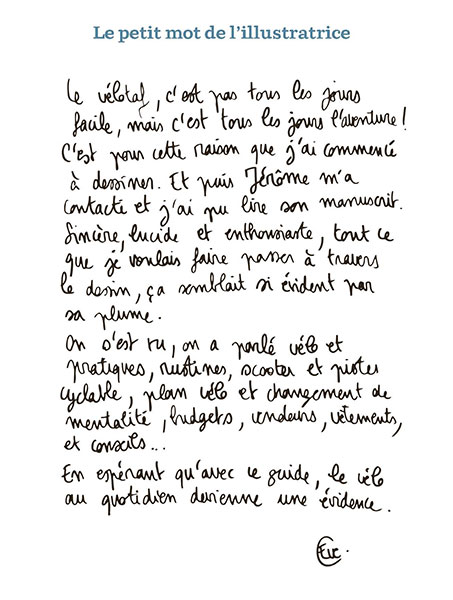 Le petit mot de l'illustratrice
Le vélotaf, c'est pas tous les jours
facile, mais c'est tous les jours l'aventure !
C'est pour cette raison que j'ai commencé
à dessiner. Et puis Jérôme m'a
contacté et j'ai pu lire son manuscrit.
Sincère, lucide et enthousiaste, tout ce
que je voulais faire passer à travers
le dessin, ça semblait si évident par
sa plume.
On s'est vu, on a parlé vélo et
pratiques, rustines, scooter et pistes
cyclable, plan vélo et changement de
mentalité, budgets, vendeurs, vêtements,
et conseils...
En espérant qu'avec ce guide, le vélo
au quotidien devienne une évidence.
Eve.